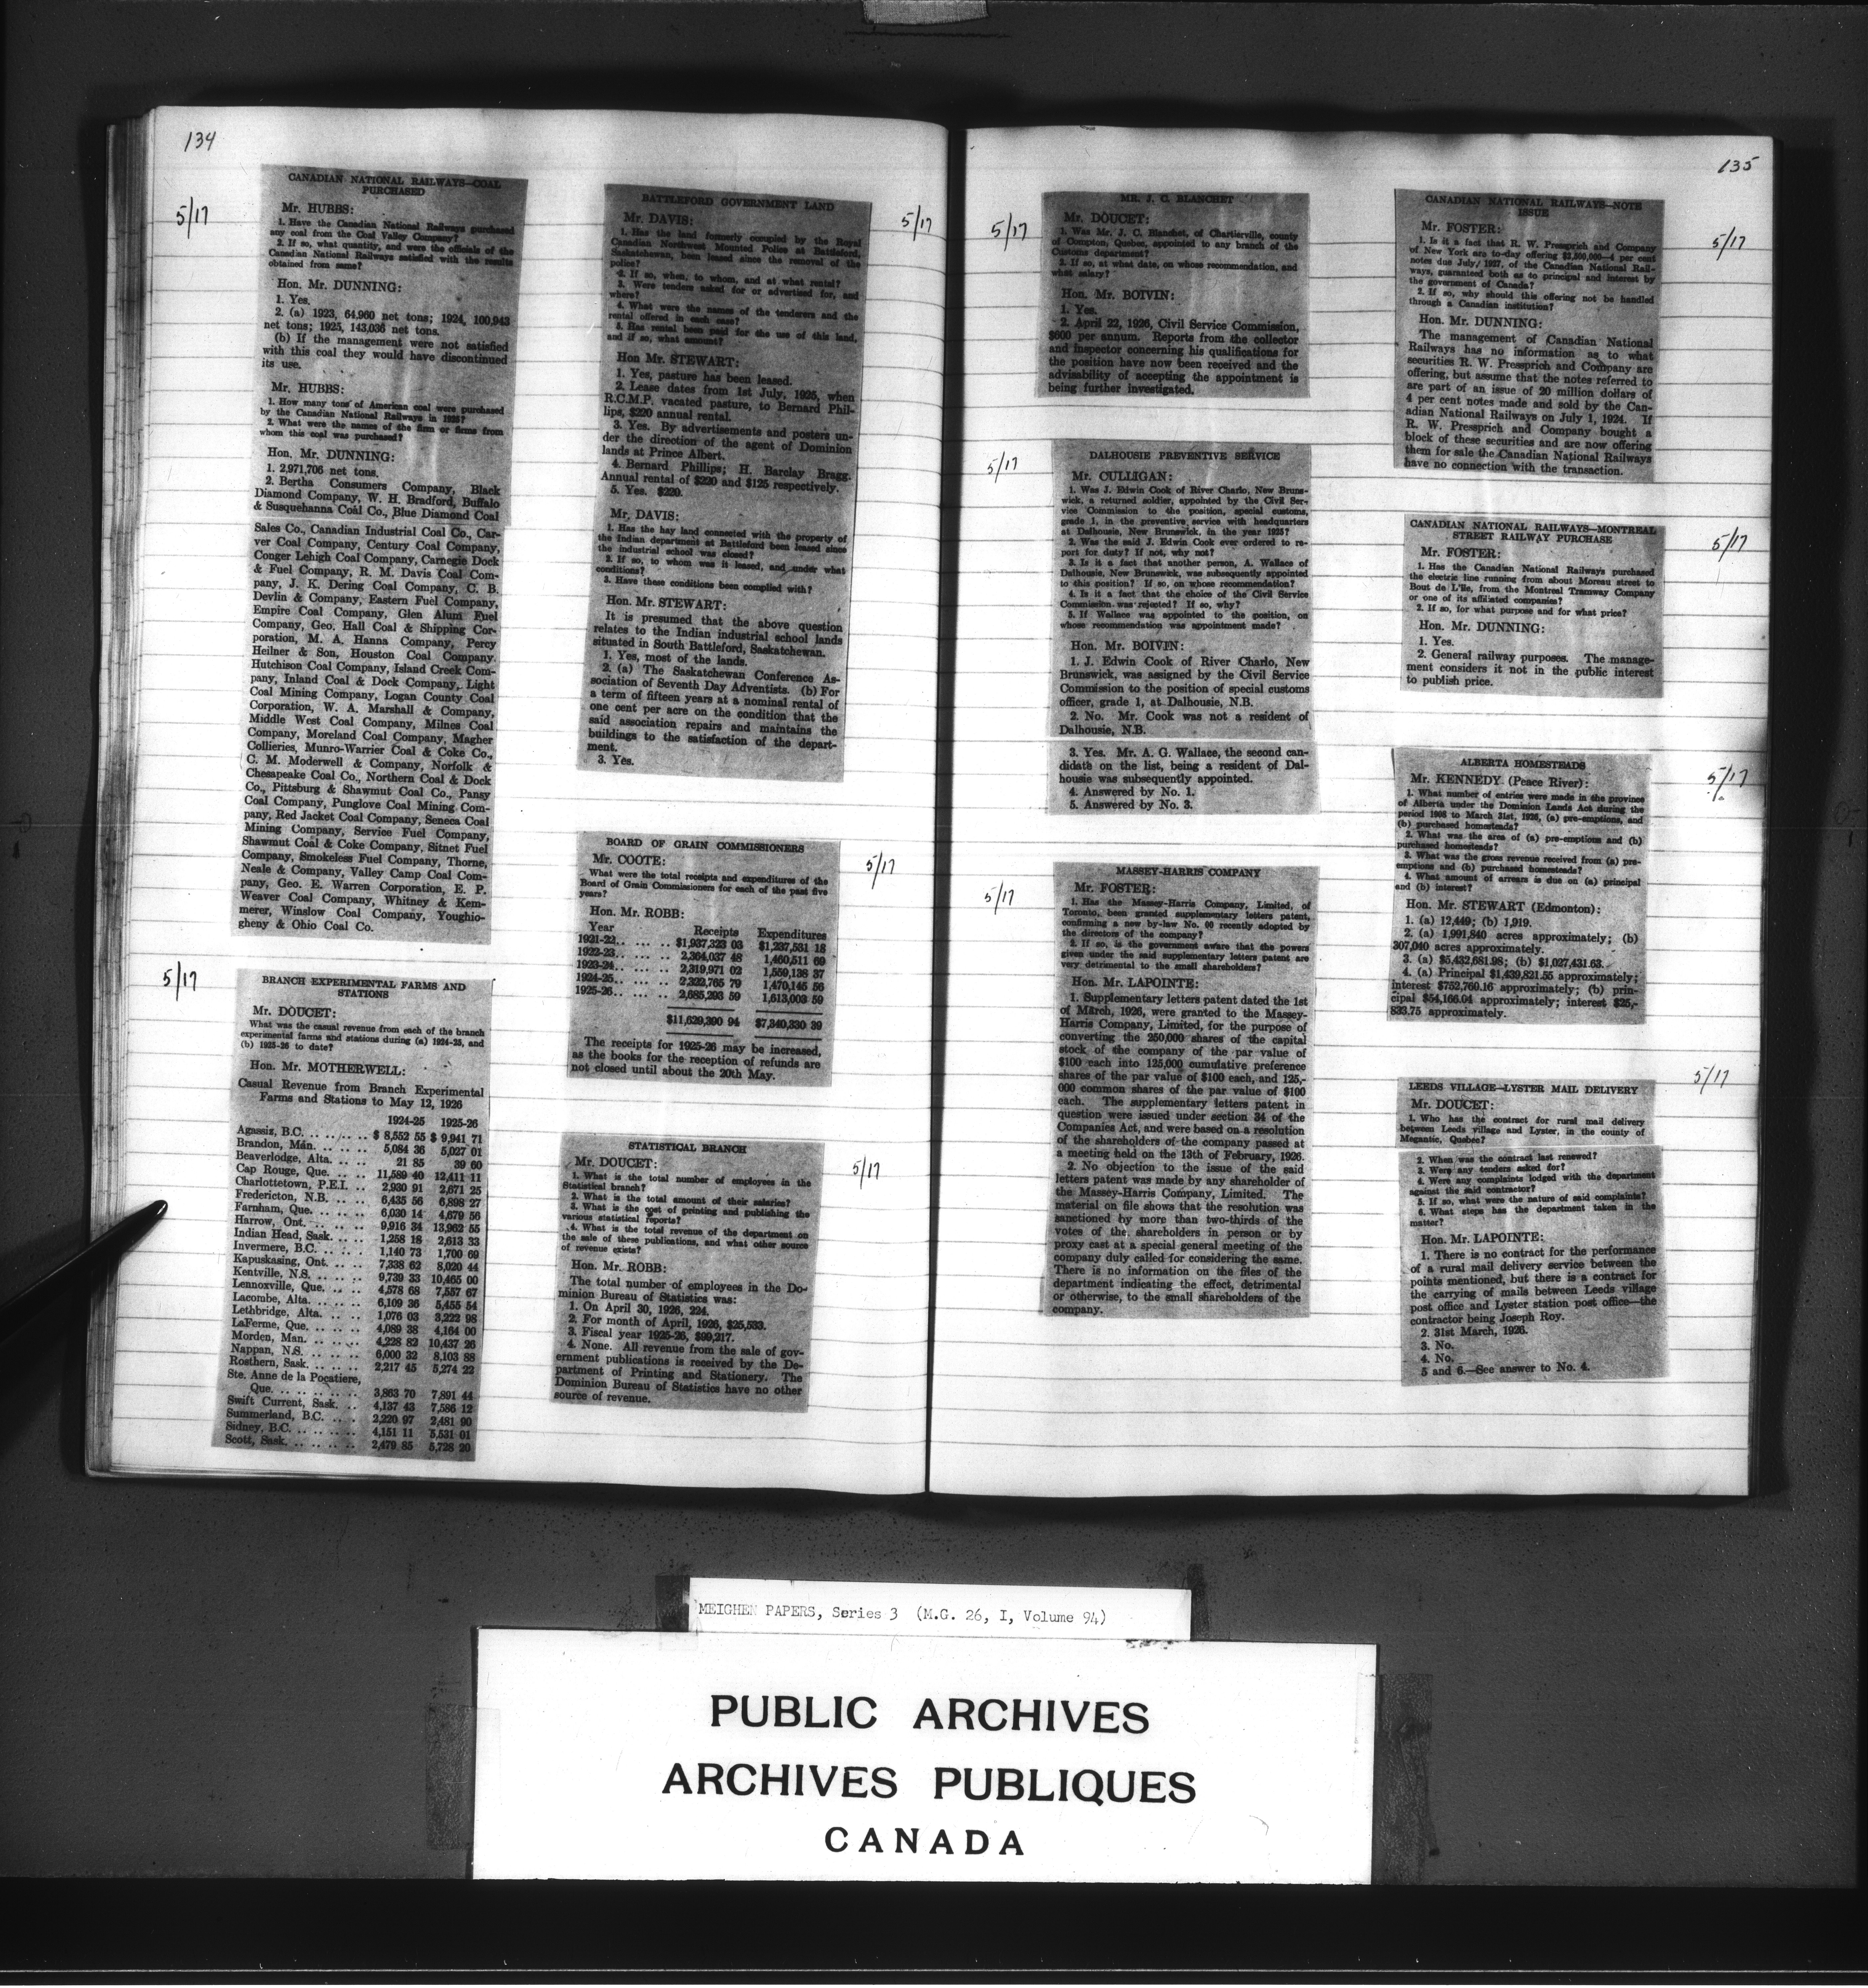 134
5/17
CANADIAN NATIONAL RAILWAYS—COAL
PURCHASED
Mr. HUBBS:
1. Have the Canadian National Railways purchased
any coal from the Coal Valley Company?
2. If so, what quantity, and were the officials of the
Canadian National Railways satisfied with the results
obtained from same?
Hon. Mr. DUNNING:
1. Yes.
2. (a) 1923, 64,960 net tons; 1924, 100,943
net tons; 1925, 143,036 net tons.
(b) If the management were not satisfied
with this coal they would have discontinued
its use.
Mr. HUBBS:
1. How many tons of American coal were purchased
by the Canadian National Railways in 1925?
2. What were the names of the firm or firms from
whom this coal was purchased?
Hon. Mr. DUNNING:
1. 2,971,706 net tons.
2. Bertha Consumers Company, Black
Diamond Company, W. H. Bradford, Buffalo
& Susquehanna Coal Co., Blue Diamond Coal
Sales Co., Canadian Industrial Coal Co., Car-
ver Coal Company, Century Coal Company,
Conger Lehigh Coal Company, Carnegie Dock
& Fuel Company, R. M. Davis Coal Com-
pany, J. K. Dering Coal Company, C. B.
Devlin & Company, Eastern Fuel Company,
Empire Coal Company, Glen Alum Fuel
Company, Geo. Hall Coal & Shipping Cor-
poration, M. A. Hanna Company, Percy
Heilner & Son, Houston Coal Company.
Hutchison Coal Company, Island Creek Com-
pany, Inland Coal & Dock Company, Light
Coal Mining Company, Logan County Coal
Corporation, W. A. Marshall & Company,
Middle West Coal Company, Milnes Coal
Company, Moreland Coal Company, Magher
Collieries, Munro-Warrier Coal & Coke Co.,
C. M. Moderwell & Company, Norfolk &
Chesapeake Coal Co., Northern Coal & Dock
Co., Pittsburg & Shawmut Coal Co., Pansy
Coal Company, Punglove Coal Mining Com-
pany, Red Jacket Coal Company, Seneca Coal
Mining Company, Service Fuel Company,
Shawmut Coal & Coke Company, Sitnet Fuel
Company, Smokeless Fuel Company, Thorne,
Neale & Company, Valley Camp Coal Com-
pany, Geo. E. Warren Corporation, E. P.
Weaver Coal Company, Whitney & Kem-
merer, Winslow Coal Company, Youghio-
gheny & Ohio Coal Co.
5/17
BRANCH EXPERIMENTAL FARMS AND
STATIONS
Mr. DOUCET:
What was the casual revenue from each of the branch
experimental farms and stations during (a) 1924-25, and
(b) 1925-26 to date?
Hon. Mr. MOTHERWELL:
Casual Revenue from Branch Experimental
Farms and Stations to May 12, 1926
1924-25 1925-26
Agassiz, B.C. .. .. .. .. $ 8,552 55 $ 9,941 71
Brandon, Man. .. .. .. .. 5,084 36 5,027 01
Beaverlodge, Alta. .. .. .. 21 85 39 60
Cap Rouge, Que. .. .. .. 11,589 40 12,411 11
Charlottetown, P.E.I. .. .. 2,930 91 2,671 25
Fredericton, N.B. .. .. .. 6,435 56 6,898 27
Farnham, Que. .. .. .. .. 6,030 14 4,679 56
Harrow, Ont. .. .. .. .. 9,916 34 13,962 55
Indian Head, Sask. .. .. .. 1,258 18 2,613 33
Invermere, B.C. .. .. .. 1,140 73 1,700 69
Kapuskasing, Ont. .. .. .. 7,338 62 8,020 44
Kentville, N.S. .. .. .. .. 9,739 33 10,465 00
Lennoxville, Que. .. .. .. 4,578 68 7,557 67
Lacombe, Alta. .. .. .. .. 6,109 36 5,455 54
Lethbridge, Alta. .. .. .. 1,076 03 3,222 98
LaFerme, Que. .. .. .. .. 4,089 38 4,164 00
Morden, Man. .. .. .. .. 4,228 82 10,437 26
Nappan, N.S. .. .. .. .. 6,000 32 8,103 88
Rosthern, Sask. .. .. .. .. 2,217 45 5,274 22
Ste. Anne de la Pocatiere,
Que. .. .. .. .. .. .. 3,863 70 7,891 44
Swift Current, Sask. .. .. 4,137 43 7,586 12
Summerland, B.C. .. .. .. 2,220 97 2,481 90
Sidney, B.C. .. .. .. .. 4,151 11 5,531 01
Scott, Sask. .. .. .. .. .. 2,479 85 5,728 20
5/17
BATTLEFORD GOVERNMENT LAND
Mr. DAVIS:
1. Has the land formerly occupied by the Royal
Canadian Northwest Mounted Police at Battleford,
Saskatchewan, been leased since the removal of the
police?
2. If so, when, to whom, and at what rental?
3. Were tenders asked for or advertised for, and
where?
4. What were the names of the tenderers and the
rental offered in each case?
5. Has rental been paid for the use of this land,
and if so, what amount?
Hon Mr. STEWART:
1. Yes, pasture has been leased.
2. Lease dates from 1st July, 1925, when
R.C.M.P. vacated pasture, to Bernard Phil-
lips, $220 annual rental.
3. Yes. By advertisements and posters un-
der the direction of the agent of Dominion
lands at Prince Albert.
4. Bernard Phillips; H. Barclay Bragg.
Annual rental of $220 and $125 respectively.
5. Yes. $220.
Mr. DAVIS:
1. Has the hay land connected with the property of
the Indian department at Battleford been leased since
the industrial school was closed?
2. If so, to whom was it leased, and under what
conditions?
3. Have these conditions been complied with?
Hon. Mr. STEWART:
It is presumed that the above question
relates to the Indian industrial school lands
situated in South Battleford, Saskatchewan.
1. Yes, most of the lands.
2. (a) The Saskatchewan Conference As-
sociation of Seventh Day Adventists. (b) For
a term of fifteen years at a nominal rental of
one cent per acre on the condition that the
said association repairs and maintains the
buildings to the satisfaction of the depart-
ment.
3. Yes.
5/17
BOARD OF GRAIN COMMISSIONERS
Mr. COOTE:
What were the total receipts and expenditures of the
Board of Grain Commissioners for each of the past five
years?
Hon. Mr. ROBB:
Year Receipts Expenditures
1921-22.. .. .. .. $1,937,323 03 $1,237,531 18
1922-23.. .. .. .. 2,364,037 48 1,460,511 69
1923-24.. .. .. .. 2,319,971 02 1,559,138 37
1924-25.. .. .. .. 2,322,765 79 1,470,145 56
1925-26.. .. .. .. 2,685,293 59 1,613,003 59
$11,629,390 94 $7,340,330 39
The receipts for 1925-26 may be increased,
as the books for the reception of refunds are
not closed until about the 20th May.
5/17
STATISTICAL BRANCH
Mr. DOUCET:
1. What is the total number of employees in the
Statistical branch?
2. What is the total amount of their salaries?
3. What is the cost of printing and publishing the
various statistical reports?
4. What is the total revenue of the department on
the sale of these publications, and what other source
of revenue exists?
Hon. Mr. ROBB:
The total number of employees in the Do-
minion Bureau of Statistics was:
1. On April 30, 1926, 224.
2. For month of April, 1926, $25,533.
3. Fiscal year 1925-26, $99,217.
4. None. All revenue from the sale of gov-
ernment publications is received by the De-
partment of Printing and Stationery. The
Dominion Bureau of Statistics have no other
source of revenue.
135
5/17
MR. J. C. BLANCHET
Mr. DOUCET:
1. Was Mr. J. C. Blanchet, of Chartierville, county
of Compton, Quebec, appointed to any branch of the
Customs department?
2. If so, at what date, on whose recommendation, and
what salary?
Hon. Mr. BOIVIN:
1. Yes.
2. April 22, 1926, Civil Service Commission,
$600 per annum. Reports from the collector
and inspector concerning his qualifications for
the position have now been received and the
advisability of accepting the appointment is
being further investigated.
5/17
DALHOUSIE PREVENTIVE SERVICE
Mr. CULLIGAN:
1. Was J. Edwin Cook of River Charlo, New Bruns-
wick, a returned soldier, appointed by the Civil Ser-
vice Commission to the position, special customs,
grade 1, in the preventive service with headquarters
at Dalhousie, New Brunswick, in the year 1925?
2. Was the said J. Edwin Cook ever ordered to re-
port for duty? If not, why not?
3. Is it a fact that another person, A. Wallace of
Dalhousie, New Brunswick, was subsequently appointed
to this position? If so, on whose recommendation?
4. Is it a fact that the choice of the Civil Service
Commission was rejected? If so, why?
5. If Wallace was appointed to the position, on
whose recommendation was appointment made?
Hon. Mr. BOIVIN:
1. J. Edwin Cook of River Charlo, New
Brunswick, was assigned by the Civil Service
Commission to the position of special customs
officer, grade 1, at Dalhousie, N.B.
2. No. Mr. Cook was not a resident of
Dalhousie, N.B.
3. Yes. Mr. A. G. Wallace, the second can-
didate on the list, being a resident of Dal-
housie was subsequently appointed.
4. Answered by No. 1.
5. Answered by No. 3.
5/17
MASSEY-HARRIS COMPANY
Mr. FOSTER:
1. Has the Massey-Harris Company, Limited, of
Toronto, been granted supplementary letters patent,
confirming a new by-law No. 60 recently adopted by
the directors of the company?
2. If so, is the government aware that the powers
given under the said supplementary letters patent are
very detrimental to the small shareholders?
Hon. Mr. LAPOINTE:
1. Supplementary letters patent dated the 1st
of March, 1926, were granted to the Massey-
Harris Company, Limited, for the purpose of
converting the 250,000 shares of the capital
stock of the company of the par value of
$100 each into 125,000 cumulative preference
shares of the par value of $100 each, and 125,-
000 common shares of the par value of $100
each. The supplementary letters patent in
question were issued under section 34 of the
Companies Act, and were based on a resolution
of the shareholders of the company passed at
a meeting held on the 13th of February, 1926.
2. No objection to the issue of the said
letters patent was made by any shareholder of
the Massey-Harris Company, Limited. The
material on file shows that the resolution was
sanctioned by more than two-thirds of the
votes of the shareholders in person or by
proxy cast at a special general meeting of the
company duly called for considering the same.
There is no information on the files of the
department indicating the effect, detrimental
or otherwise, to the small shareholders of the
company.
5/17
CANADIAN NATIONAL RAILWAYS—NOTE
ISSUE
Mr. FOSTER:
1. Is it a fact that R. W. Pressprich and Company
of New York are to-day offering $3,500,000—4 per cent
notes due July, 1927, of the Canadian National Rail-
ways, guaranteed both as to principal and interest by
the government of Canada?
2. If so, why should this offering not be handled
through a Canadian institution?
Hon. Mr. DUNNING:
The management of Canadian National
Railways has no information as to what
securities R. W. Pressprich and Company are
offering, but assume that the notes referred to
are part of an issue of 20 million dollars of
4 per cent notes made and sold by the Can-
adian National Railways on July 1, 1924. If
R. W. Pressprich and Company bought a
block of these securities and are now offering
them for sale the Canadian National Railways
have no connection with the transaction.
5/17
CANADIAN NATIONAL RAILWAYS—MONTREAL
STREET RAILWAY PURCHASE
Mr. FOSTER:
1. Has the Canadian National Railways purchased
the electric line running from about Moreau street to
Bout de L'Ile, from the Montreal Tramway Company
or one of its affiliated companies?
2. If so, for what purpose and for what price?
Hon. Mr. DUNNING:
1. Yes.
2. General railway purposes. The manage-
ment considers it not in the public interest
to publish price.
5/17
ALBERTA HOMESTEADS
Mr. KENNEDY (Peace River):
1. What number of entries were made in the province
of Alberta under the Dominion Lands Act during the
period 1908 to March 31st, 1926, (a) pre-emptions, and
(b) purchased homesteads?
2. What was the area of (a) pre-emptions and (b)
purchased homesteads?
3. What was the gross revenue received from (a) pre-
emptions and (b) purchased homesteads?
4. What amount of arrears is due on (a) principal
and (b) interest?
Hon. Mr. STEWART (Edmonton):
1. (a) 12,449; (b) 1,919.
2. (a) 1,991,840 acres approximately; (b)
307,040 acres approximately.
3. (a) $5,432,681.98; (b) $1,027,431.63.
4. (a) Principal $1,439,821.55 approximately;
interest $752,769.16 approximately; (b) prin-
cipal $54,166.04 approximately; interest $25,-
833.75 approximately.
5/17
LEEDS VILLAGE—LYSTER MAIL DELIVERY
Mr. DOUCET:
1. Who has the contract for rural mail delivery
between Leeds village and Lyster, in the county of
Megantic, Quebec?
2. When was the contract last renewed?
3. Were any tenders asked for?
4. Were any complaints lodged with the department
against the said contractor?
5. If so, what were the nature of said complaints?
6. What steps has the department taken in the
matter?
Hon. Mr. LAPOINTE:
1. There is no contract for the performance
of a rural mail delivery service between the
points mentioned, but there is a contract for
the carrying of mails between Leeds village
post office and Lyster station post office—the
contractor being Joseph Roy.
2. 31st March, 1926.
3. No.
4. No.
5 and 6.—See answer to No. 4.
MEIGHEN PAPERS, Series 3 (M.G. 26, I, Volume 94)
PUBLIC ARCHIVES
ARCHIVES PUBLIQUES
CANADA